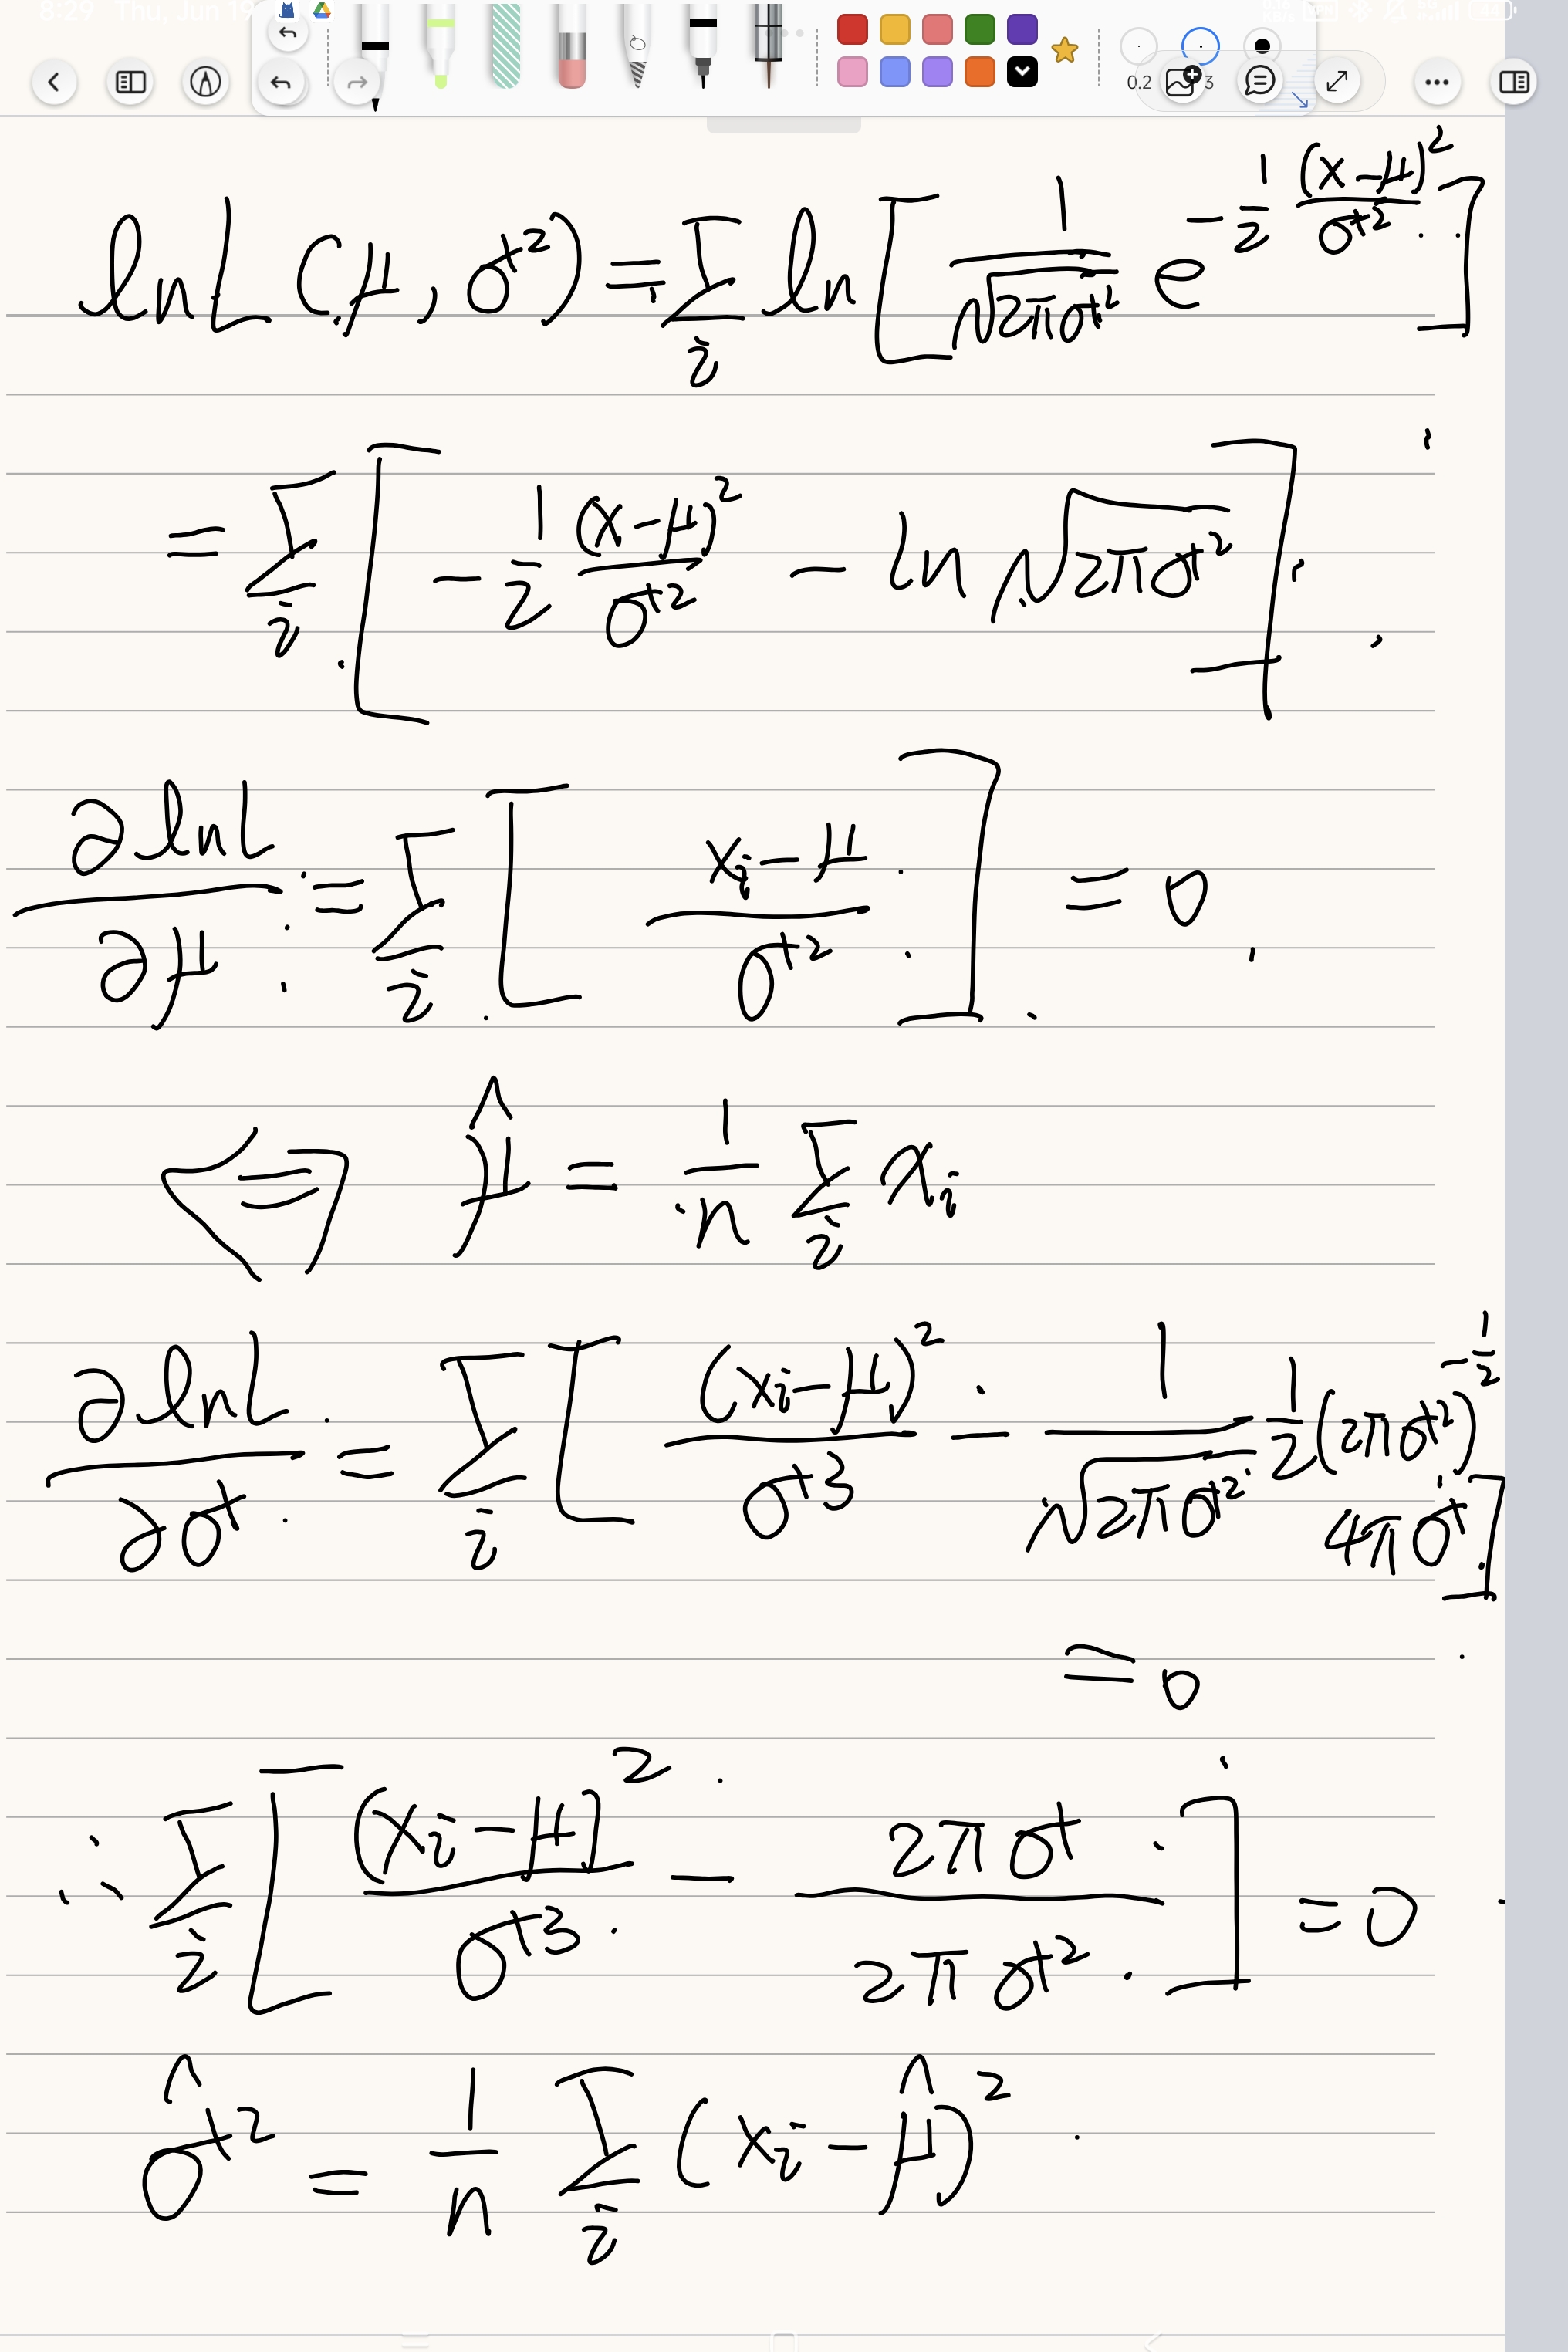 8:29 Thu, Jun 19
0.2 3
ln L (μ, σ²) = Σ_i ln [ 1/√(2πσ²) e^(-1/2 (x-μ)²/σ²) ]
= Σ_i [ -1/2 (x-μ)²/σ² - ln √(2πσ²) ]
∂lnL/∂μ = Σ_i [ (x_i-μ)/σ² ] = 0
⇔ μ̂ = 1/n Σ_i x_i
∂lnL/∂σ = Σ_i [ (x_i-μ)²/σ³ - 1/√(2πσ²) 1/2 (2πσ²)^(-1/2) 4πσ ]
= 0
∴ Σ_i [ (x_i-μ)²/σ³ - 2πσ/2πσ² ] = 0
σ̂² = 1/n Σ_i (x_i-μ̂)²